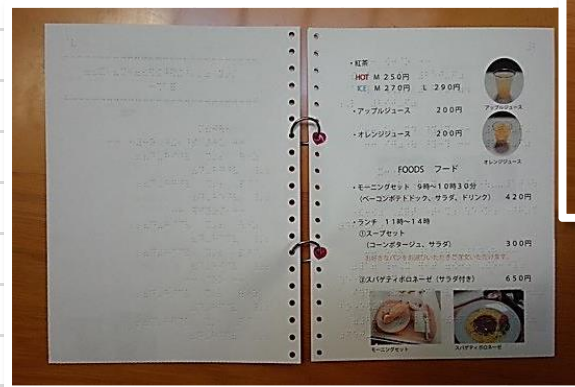 ・紅茶
HOT M 250円
ICE M 270円 L 290円
アップルジュース
・アップルジュース 200円
・オレンジジュース 200円
オレンジジュース
FOODS フード
・モーニングセット 9時～10時30分
(ベーコンポテトドック、サラダ、ドリンク) 420円
・ランチ 11時～14時
①スープセット
(コーンポタージュ、サラダ) 300円
お好きなパンをお選びいただきご注文いただけます。
②スパゲティボロネーゼ (サラダ付き) 650円
モーニングセット
スパゲティボロネーゼ